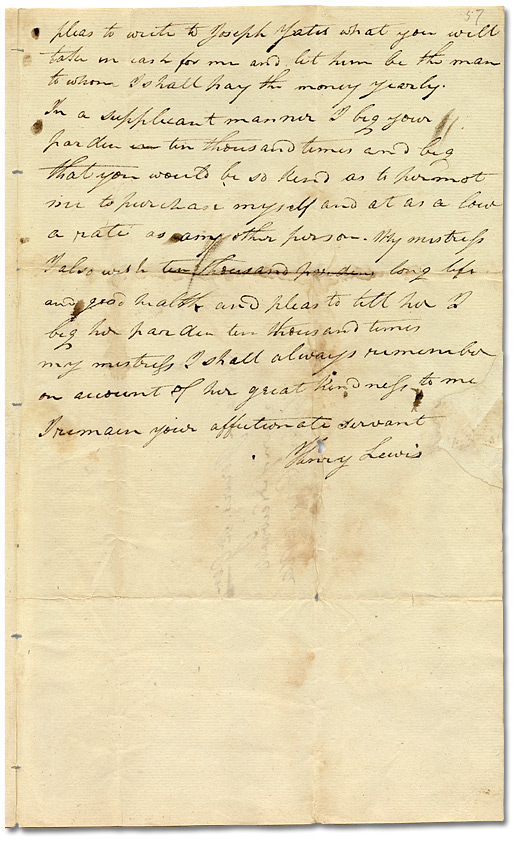 57
pleas to write to Joseph Yates what you will
take in cash for me and let him be the man
to whom I shall pay the money yearly.
In a supplicant manner I beg your
parden ten thousand times and beg
that you would be so kind as to permot
me to purchase myself and at as a low
a rate as any other person. My mistress
I also wish ten thousand pardons long life
and good health and pleas to tell her I
beg her parden ten thousand times
my mistress I shall always remember
on account of her great kindness to me
I remain your affectonate servant
Henry Lewis